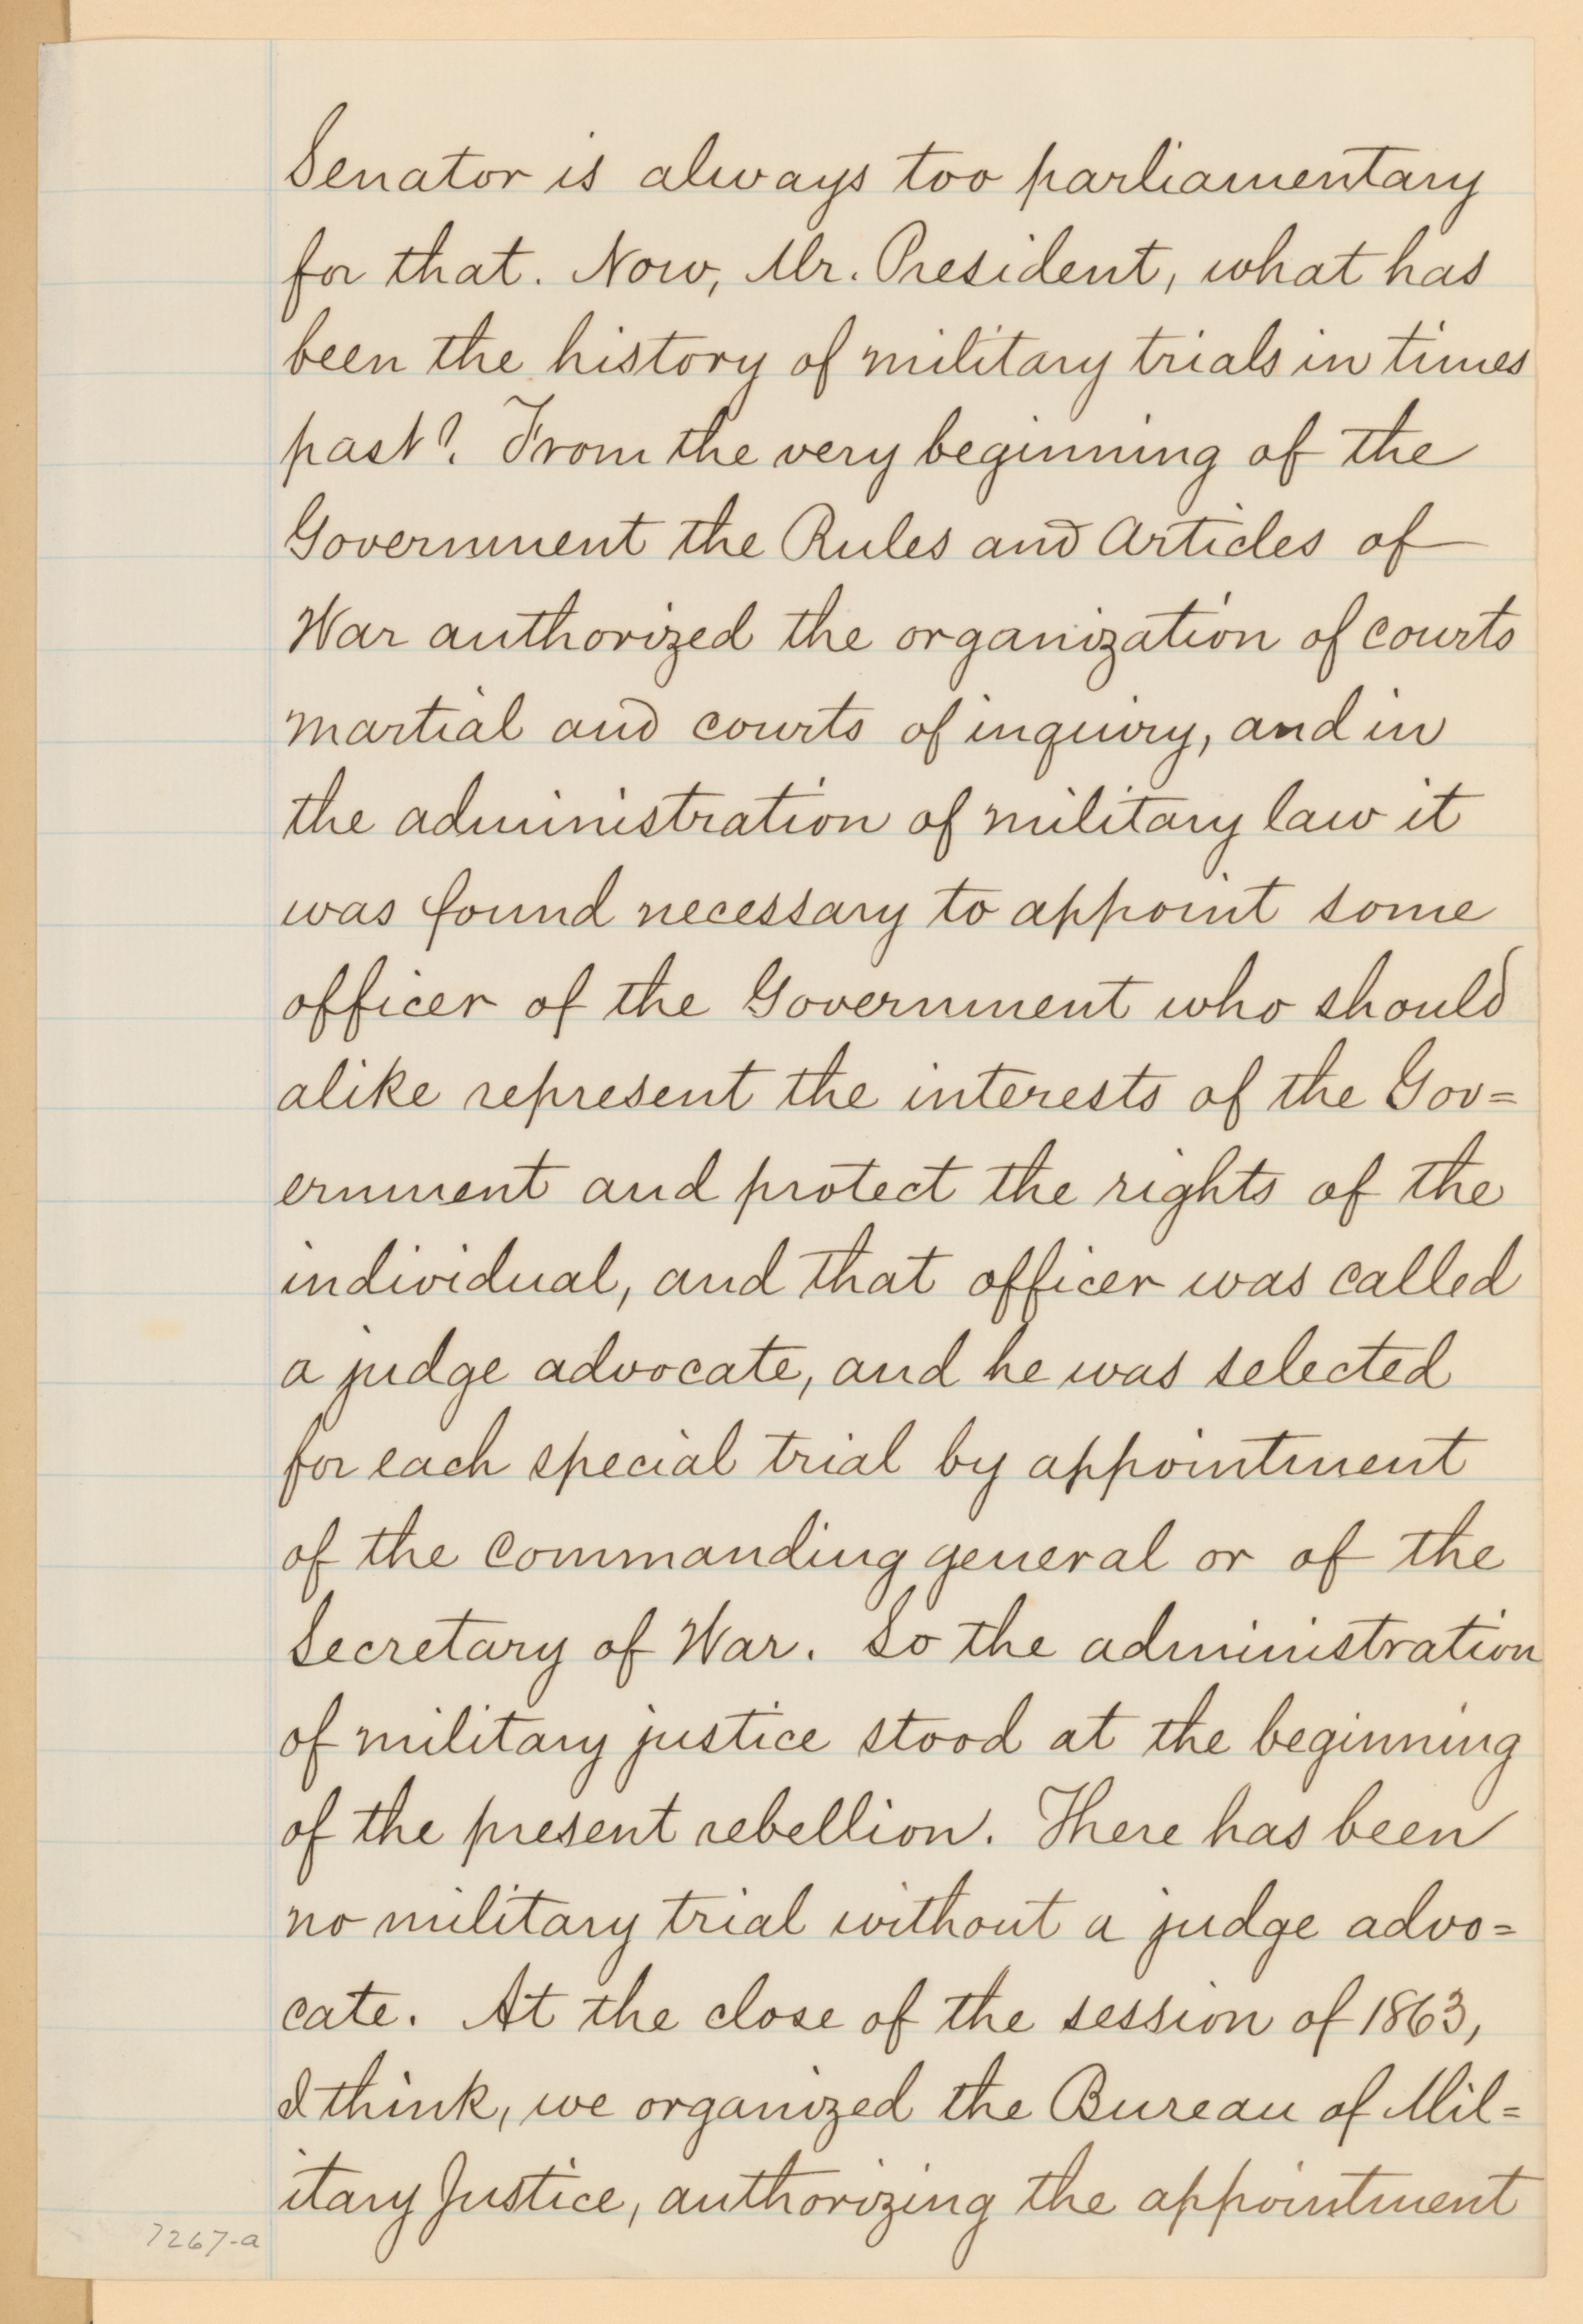 Senator is always too parliamentary
for that. Now, Mr. President, what has
been the history of military trials in times
past? From the very beginning of the
Government the Rules and Articles of
War authorized the organization of courts
martial and courts of inquiry, and in
the administration of military law it
was found necessary to appoint some
officer of the Government who should
alike represent the interests of the Gov=
ernment and protect the rights of the
individual, and that officer was called
a judge advocate, and he was selected
for each special trial by appointment
of the commanding general or of the
Secretary of War. So the administration
of military justice stood at the beginning
of the present rebellion. There has been
no military trial without a judge advo=
cate. At the close of the session of 1863,
I think, we organized the Bureau of Mil=
itary Justice, authorizing the appointment
7267-a